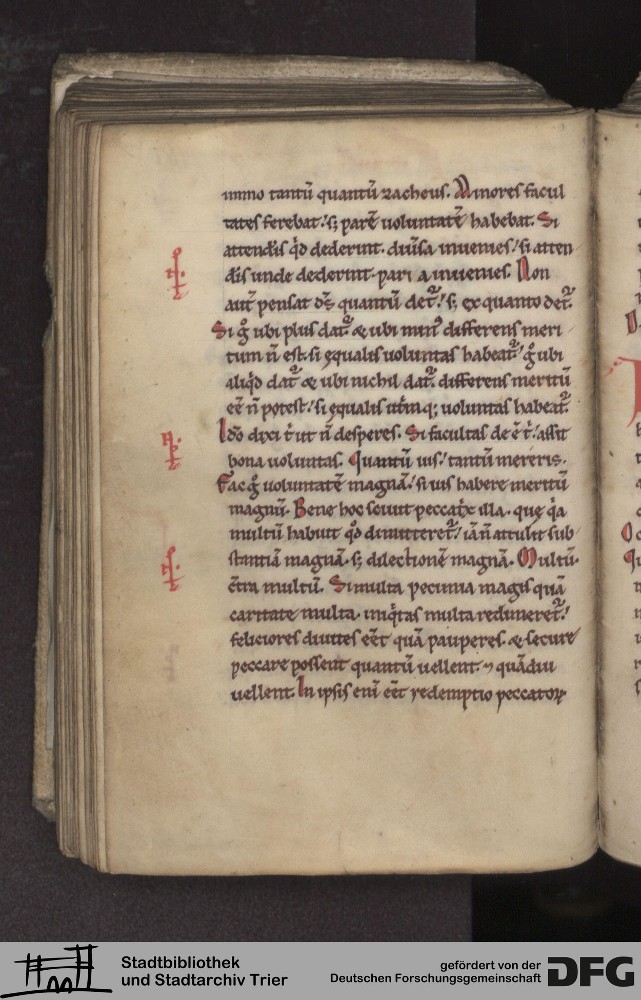 immo tantū quantū zacheus. Minores facul
tates ferebat: s; parē uoluntatē habebat. Si
attendis qd dederint. diuisa inuenies: si atten
dis unde dederint. pari a inuenies. Non
aut pensat ds quantū det: s; ex quanto det.
Si g ubi plus dat & ubi min differens meri
tum n̄ est. si ęqualis uoluntas habeat: g ubi
aliqd dat & ubi nichil dat. differens meritū
eē n̄ potest: si ęqualis utrinq; uoluntas habeat.
Ido dixi t ut n̄ desperes. Si facultas deēt: assit
bona uoluntas. Quantū uis: tantū mereris.
Fac g uoluntatē magnā: si uis habere meritū
magnū. Bene hoc sciuit peccatx illa. quę qa
multū habuit qd dimitteret: iā n̄ attulit sub
stantiā magnā. s; dilectionē magnā. Multū.
c̄tra multū. Si multa pecunia magis quā
caritate multa. iniqtas multa redimeret:
feliciores diuites eēt quā pauperes. & secure
peccare possent quantū uellent. 7 quādiu
uellent. In ipsis eni eēt redemptio peccatoꝝ
Stadtbibliothek
und Stadtarchiv Trier
gefördert von der
Deutschen Forschungsgemeinschaft
DFG